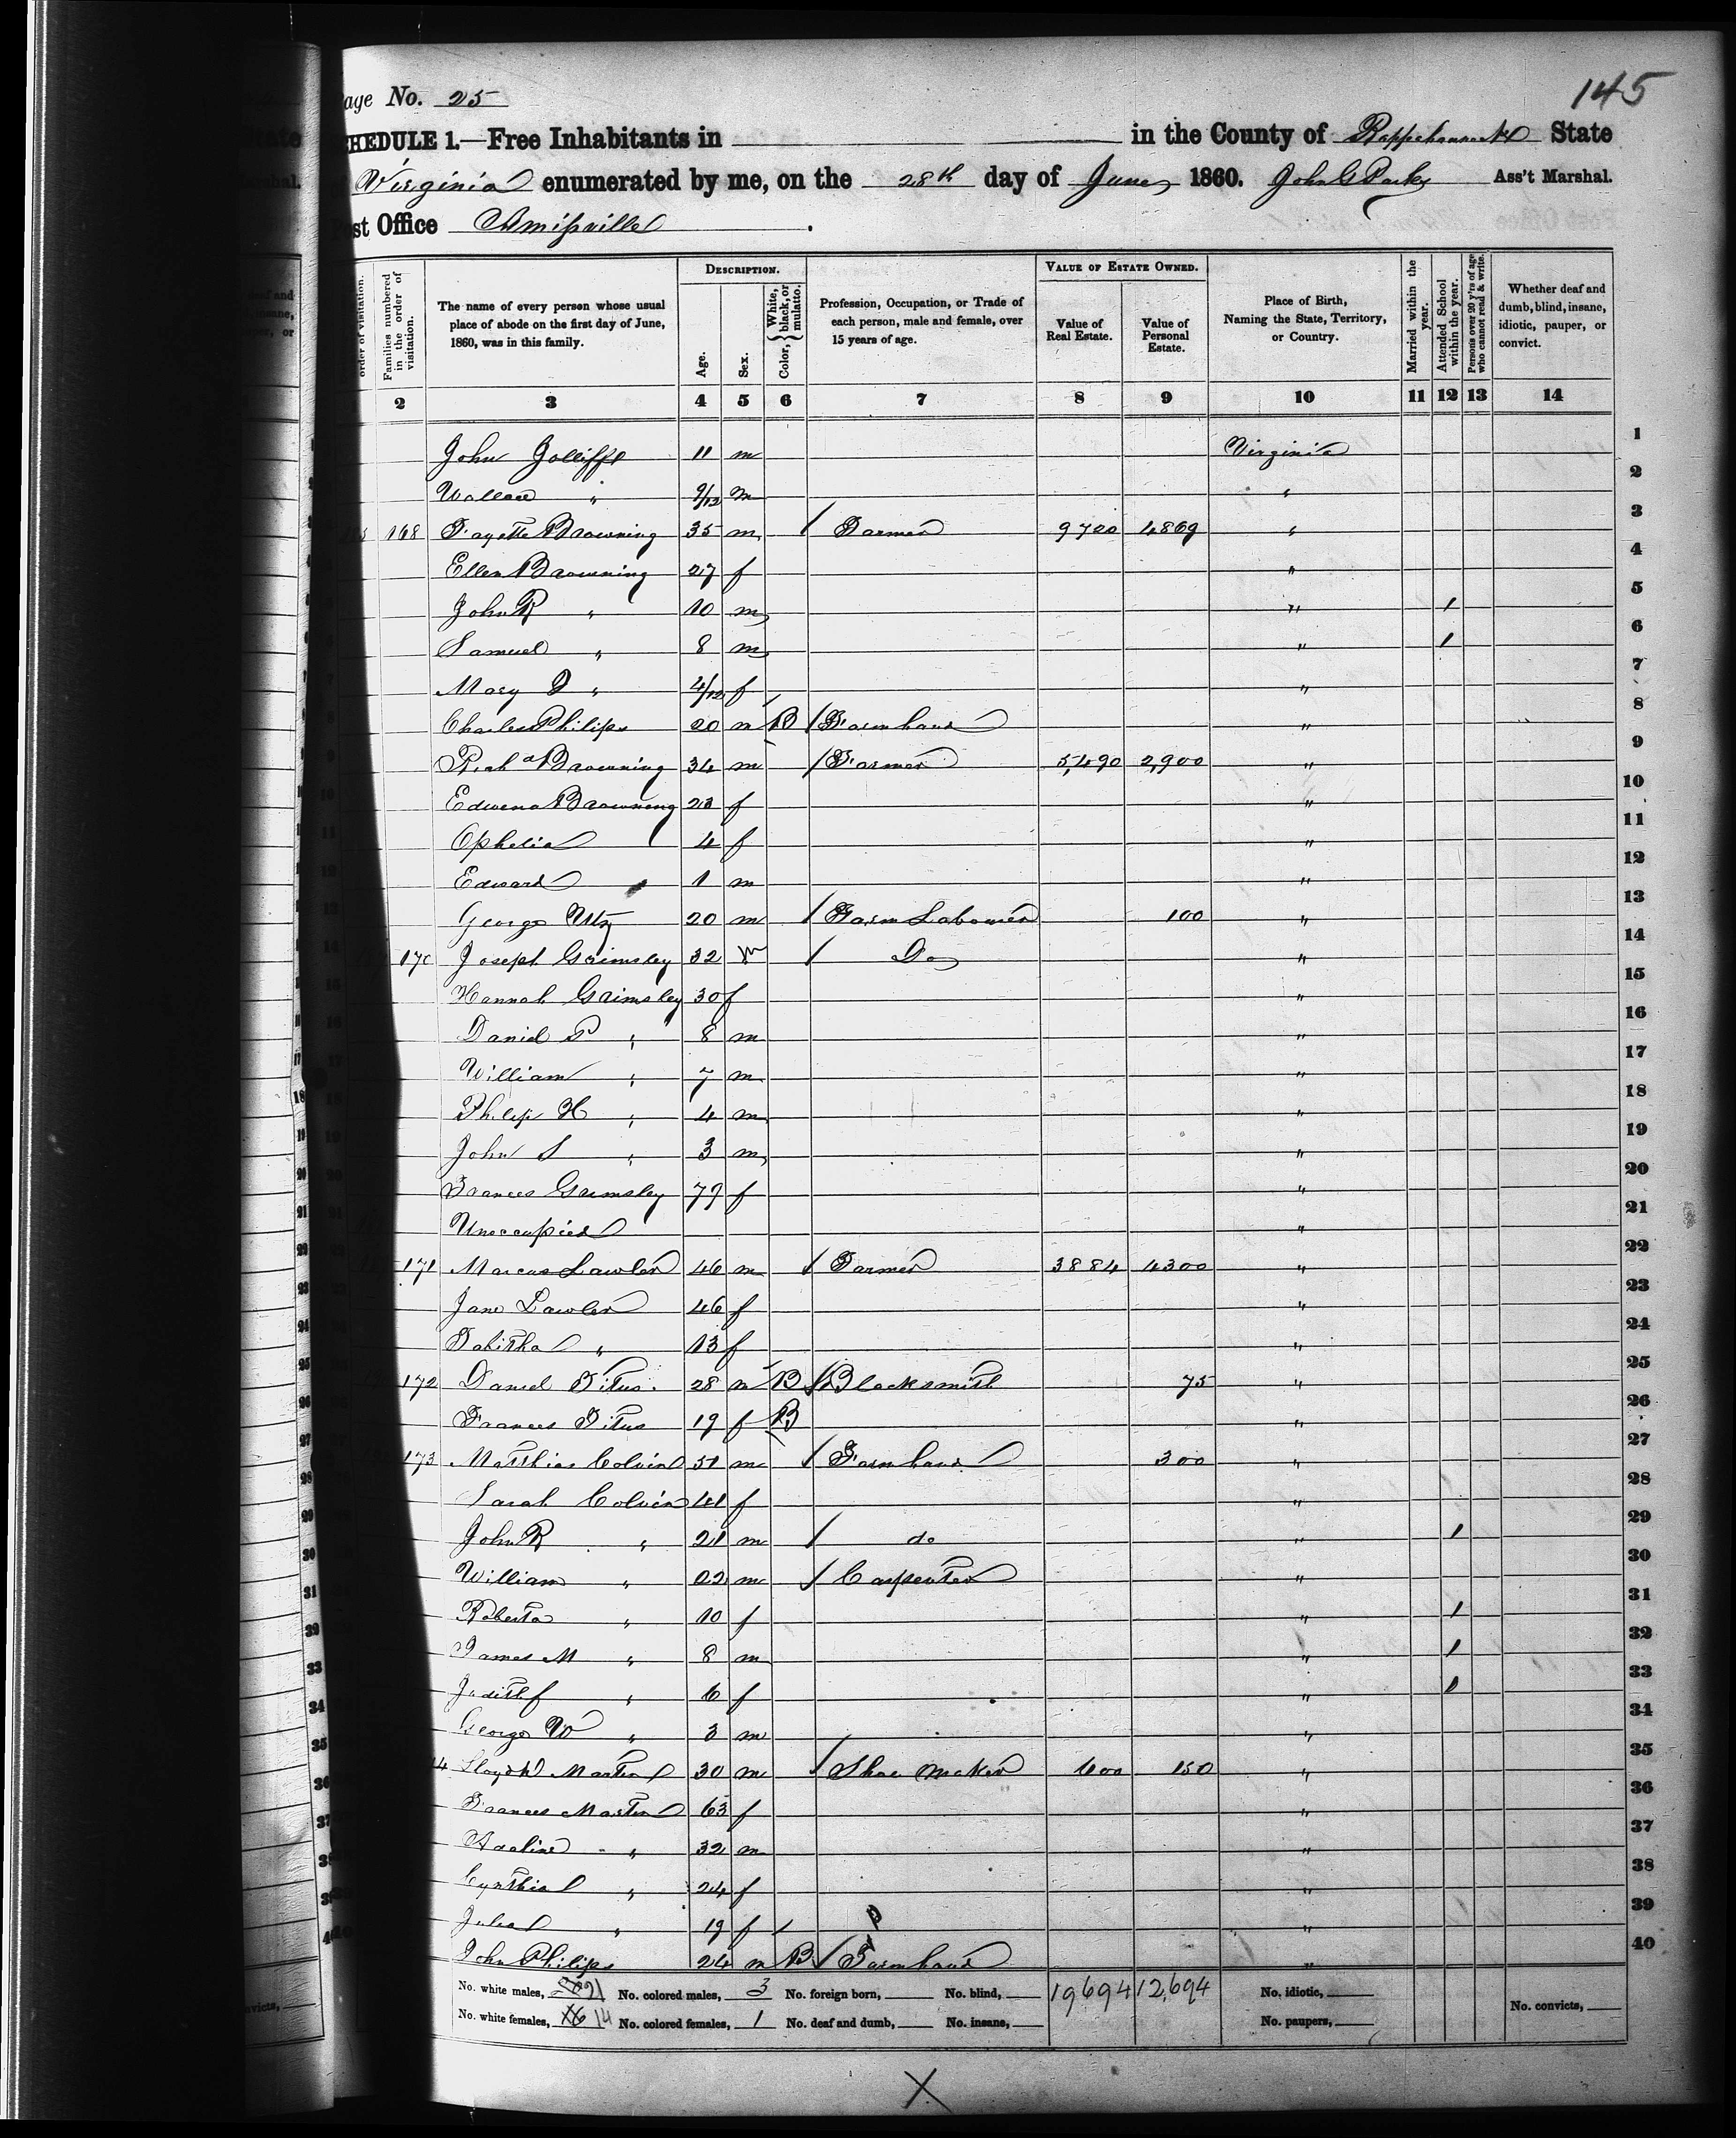 age No. 25
145
HEDULE 1.—Free Inhabitants in in the County of Rappahannock State
Virginia enumerated by me, on the 28th day of June 1860. John G Parks Ass't Marshal.
st Office Amissville
order of visitation.
Families numbered in the order of visitation.
The name of every person whose usual place of abode on the first day of June, 1860, was in this family.
Description.
Age.
Sex.
Color, White, black, or mulatto.
Profession, Occupation, or Trade of each person, male and female, over 15 years of age.
Value of Estate Owned.
Value of Real Estate.
Value of Personal Estate.
Place of Birth, Naming the State, Territory, or Country.
Married within the year.
Attended School within the year.
Persons over 20 y'rs of age who cannot read & write.
Whether deaf and dumb, blind, insane, idiotic, pauper, or convict.
2 3 4 5 6 7 8 9 10 11 12 13 14
John Jolliffe 11 m Virginia 1
Wallace " 9/12 m " 2
168 Fayette Browning 35 m / Farmer 9720 4869 " 3
Ellen Browning 27 f " 4
John R " 10 m " / 5
Samuel " 8 m " / 6
Mary " 4/12 f " 7
Charles Philips 20 m B / Farm hand " 8
Rich d Browning 34 m / Farmer 5,490 2,900 " 9
Edwena Browning 23 f " 10
Ophelia 4 f " 11
Edward 1 m " 12
George Utz 20 m / Farm Labourer 100 " 13
170 Joseph Grimsley 32 m / Do " 14
Hannah Grimsley 30 f " 15
Daniel P " 8 m " 16
William " 7 m " 17
Philip H " 4 m " 18
John S " 3 m " 19
Frances Grimsley 79 f " 20
Unoccupied " 21
171 Marcus Lawler 46 m / Farmer 3884 4300 " 22
Jane Lawler 46 f " 23
Tabitha " 13 f " 24
172 Daniel Titus 28 m B / Blacksmith 75 " 25
Frances Titus 19 f B " 26
173 Matthias Colvin 51 m / Farm hand 300 " 27
Sarah Colvin 41 f " 28
John R " 21 m / do " / 29
William " 22 m / Carpenter " 30
Roberta " 10 f " / 31
James M " 8 m " / 32
Judith f " 6 f " / 33
George W " 3 m " 34
4 Lloyd Martin 30 m / Shoe Maker 600 150 " 35
Frances Martin 63 f " 36
Adaline " 32 m " 37
Cynthia " 24 f " 38
Julia " 19 f " 39
John Philips 24 m B / Farm hand " 40
No. white males, 21 No. colored males, 3 No. foreign born, No. blind, 19,694 12,694 No. idiotic,
No. white females, 16 14 No. colored females, 1 No. deaf and dumb, No. insane, No. paupers, No. convicts,
X